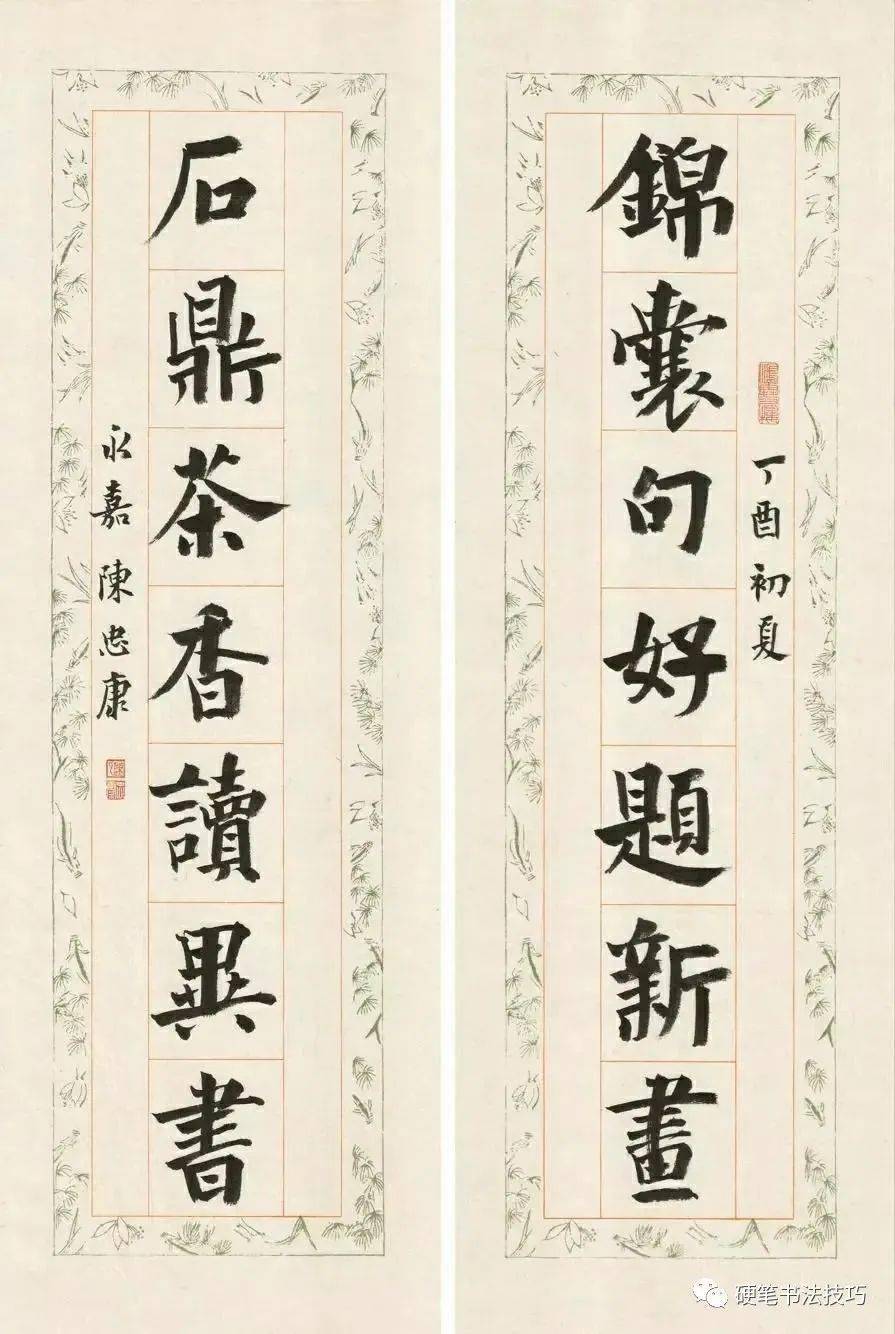 丁酉初夏
錦囊句好題新畫
石鼎茶香讀異書
永嘉陳忠康
硬笔书法技巧